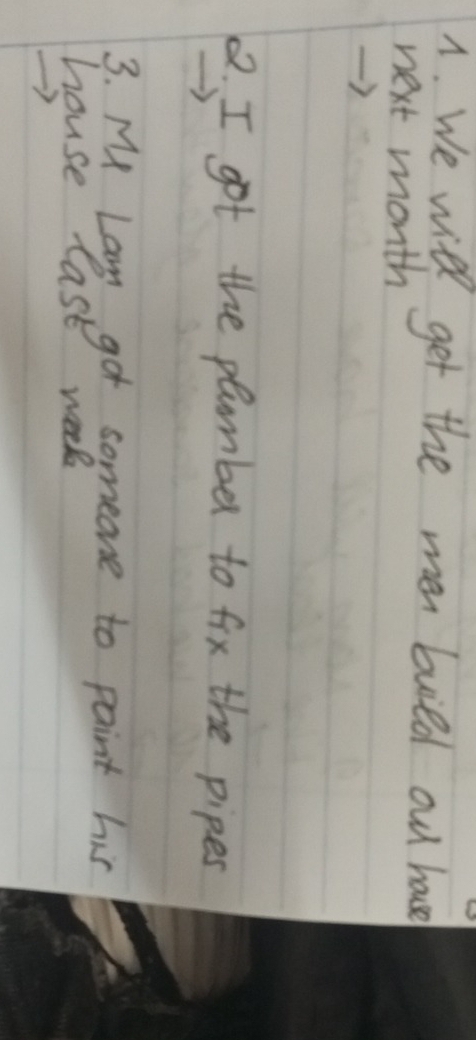 1. We will get the men build our house
next month
→
2. I got the plumber to fix the pipes
→
3. Mr Lam got someone to paint his
house last week
→